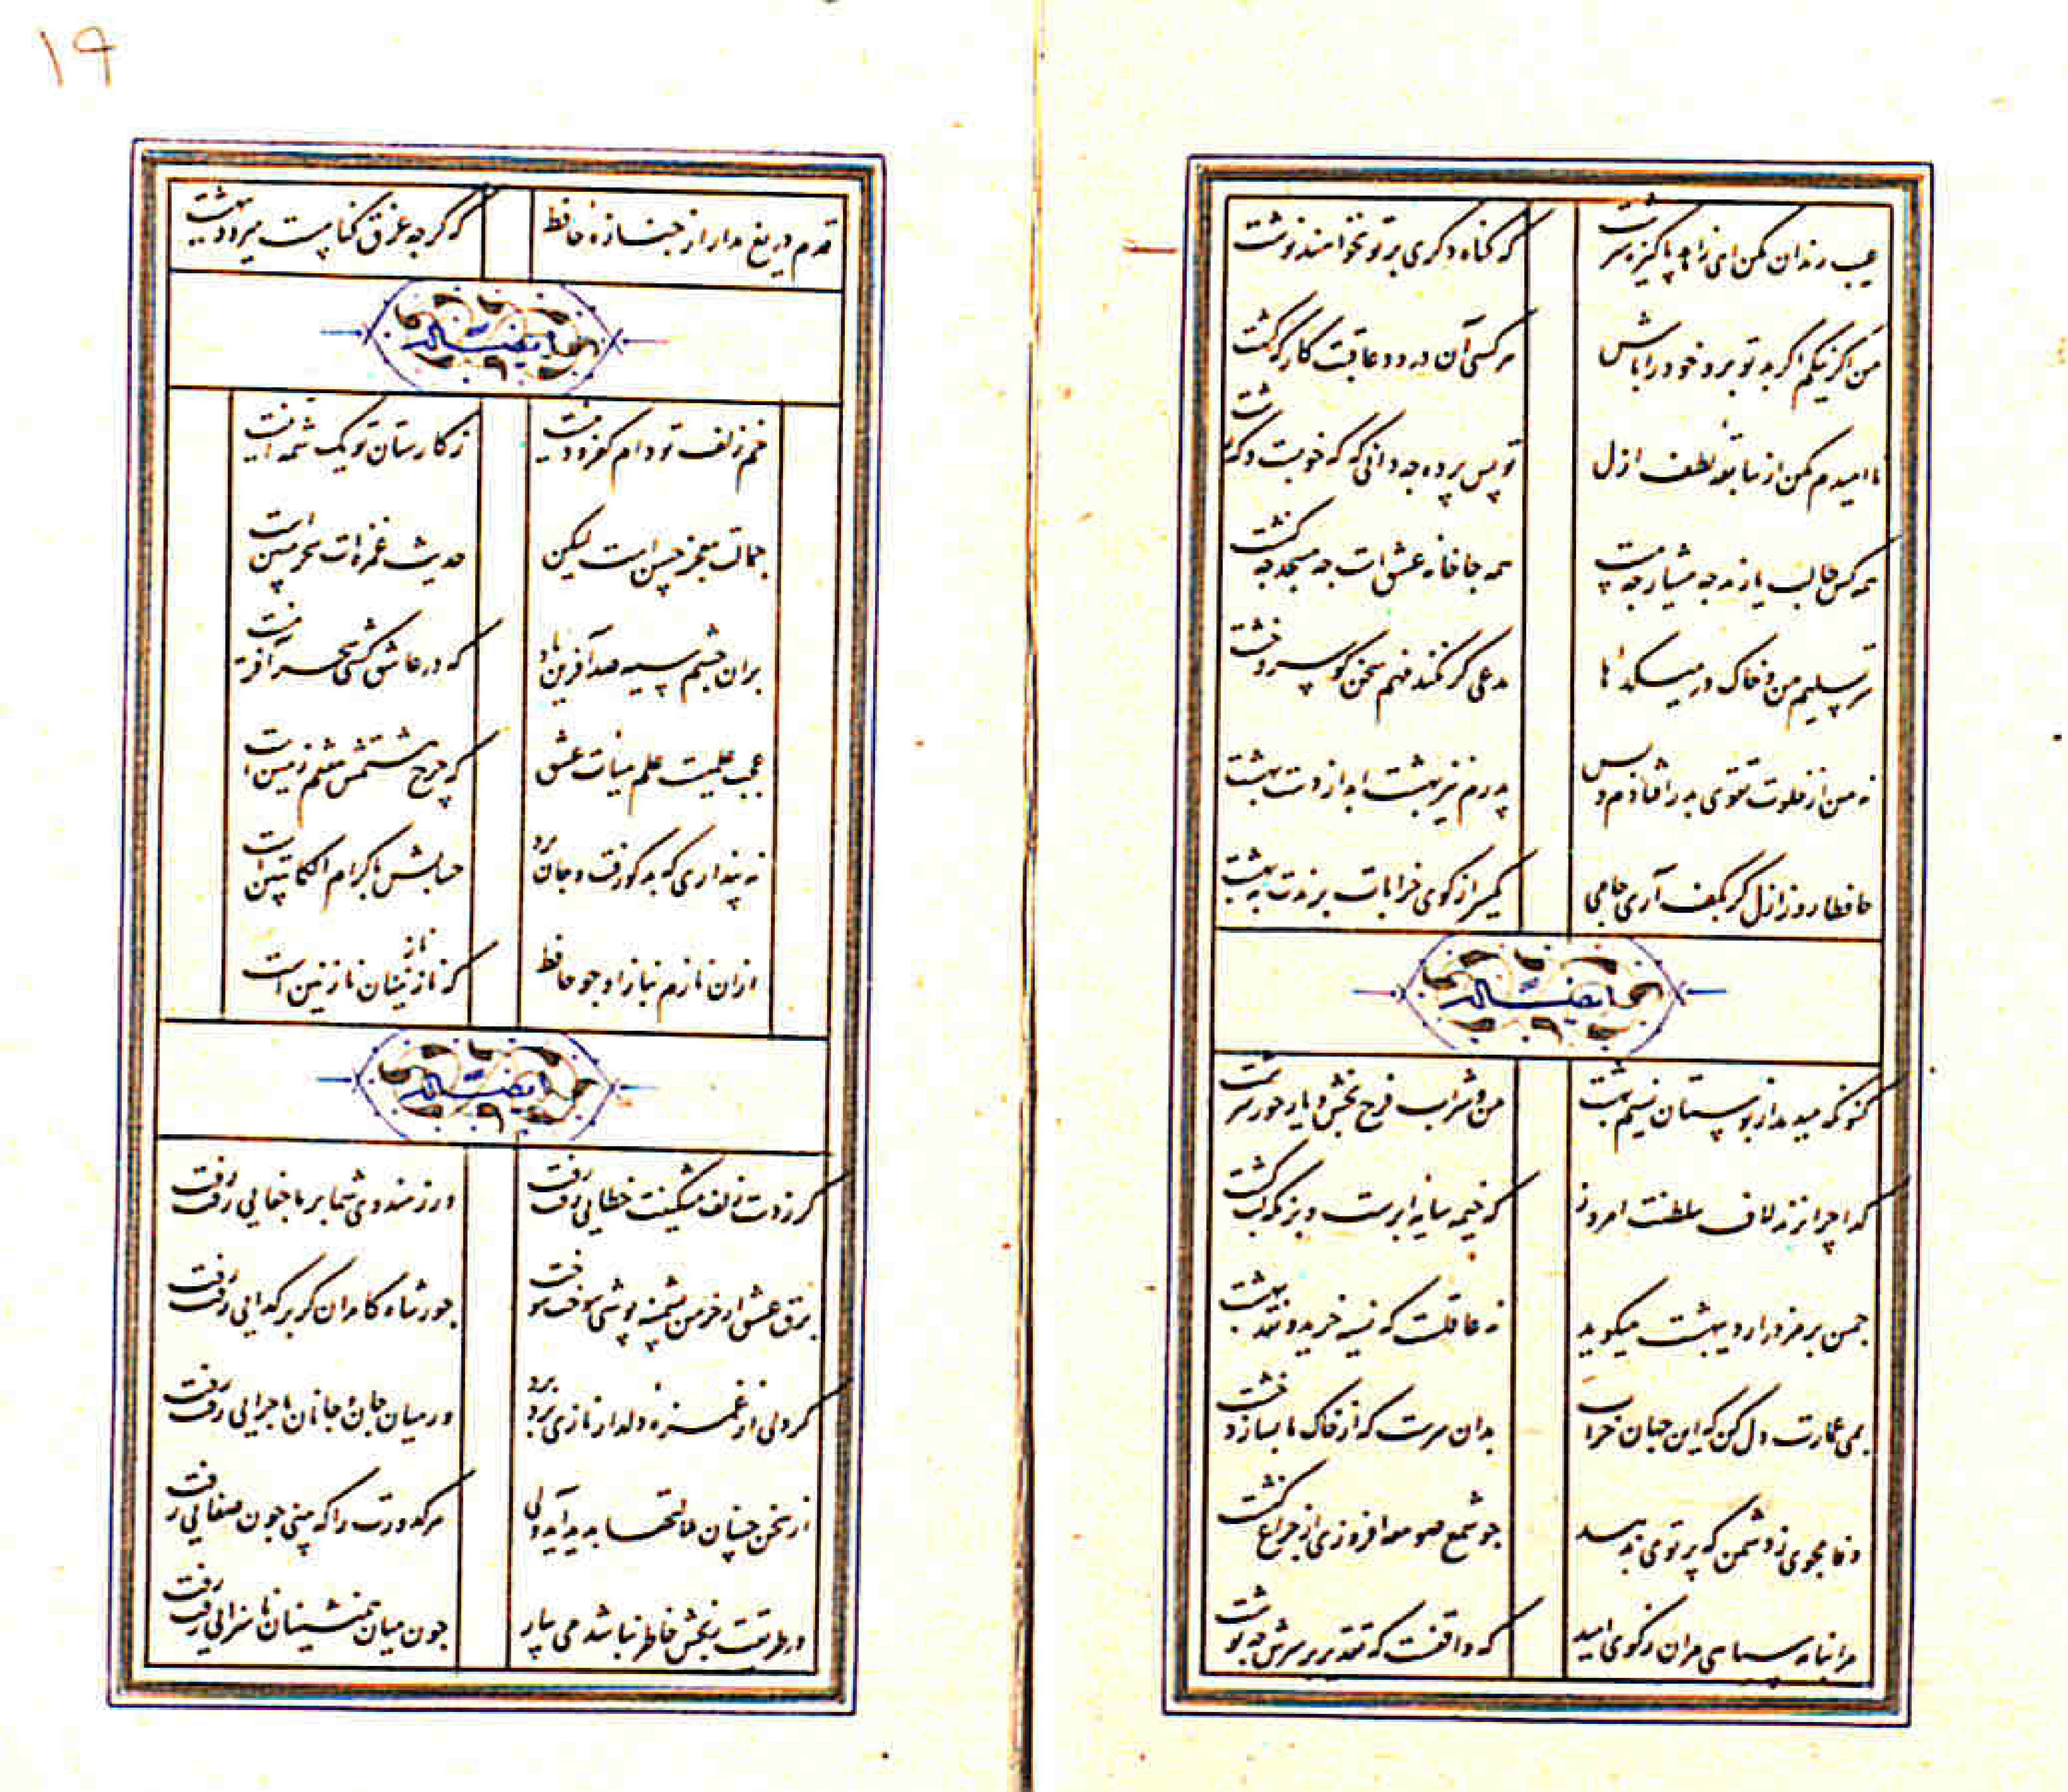 عیب رندان مکن ای زاهد پاکیزه سرشت
که کناه دکری بر تو نخواهند نوشت
من اکر نیکم اکر بد تو برو خود را باش
هر کسی آن درود عاقبت کار که کشت
ناامیدم مکن از سابقه لطف ازل
تو پس پرده جه دانی که که خوبست و که زشت
همه کس طالب یارند جه هشیار جه مست
همه جا خانه عشق است جه مسجد جه کنشت
سر تسلیم من و خاک در میکدها
مدعی کر نکند فهم سخن کو سر و خشت
نه من از خلوت تقوی بدر افتادم و بس
پدرم نیز بهشت ابد از دست بهشت
حافظا روز ازل کر بکف آری جامی
یکسر از کوی خرابات برندت به بهشت
ایضاً له
کنونکه میدمد از بوستان نسیم بهشت
من و شراب فرح بخش و یار حور سرشت
کدا چرا نزند لاف سلطنت امروز
که خیمه سایه ابرست و بزمکه لب کشت
جمن بر مزد اردیبهشت میکوید
نه عاقلست که نسیه خرید و نقد بهشت
بمی عمارت دل کن که این جهان خراب
بدان سرست که از خاک ما بسازد خشت
وفا مجوی ز دشمن که پرتوی ندهد
جو شمع صومعه افروزی از جراغ کنشت
مرا بنامه سیاهی مران ز کوی امید
که واقفست که تقدیر بر سرش جه نوشت
۱۹
قدم دریغ مدار از جنازه حافظ
که کرجه غرق کناهست میرود ببهشت
ایضاً له
خم زلف تو دام کفر و دینست
ز کارستان تو یک شمه اینست
جمالت معجز حسن است لیکن
حدیث غمزه‌ات سحر مبین است
بران چشم سیه صد آفرین باد
که در عاشق کشی سحر آفرینست
عجب علمیست علم هیأت عشق
که چرخ هشتمش هفتم زمین است
نه پنداری که بدکو رفت و جان برد
حسابش با کرام الکاتبین است
ازان نازم نیاز او جو حافظ
که ناز نازنینان نازنین است
ایضاً له
کر ز دست زلف مشکینت خطایی رفت رفت
ور ز هندوی شما بر ما جفایی رفت رفت
برق عشق ار خرمن پشمینه پوشی سوخت سوخت
جور شاه کامران کر بر کدایی رفت رفت
کر دلی از غمزه دلدار نازی برد برد
ور میان جان و جانان ماجرایی رفت رفت
از سخن چینان ملالتها بدید آید ولی
هر کدورت را که بینی جون صفایی رفت
در طریقت رنجش خاطر نباشد می بیار
جون میان همنشینان ناسزایی رفت رفت